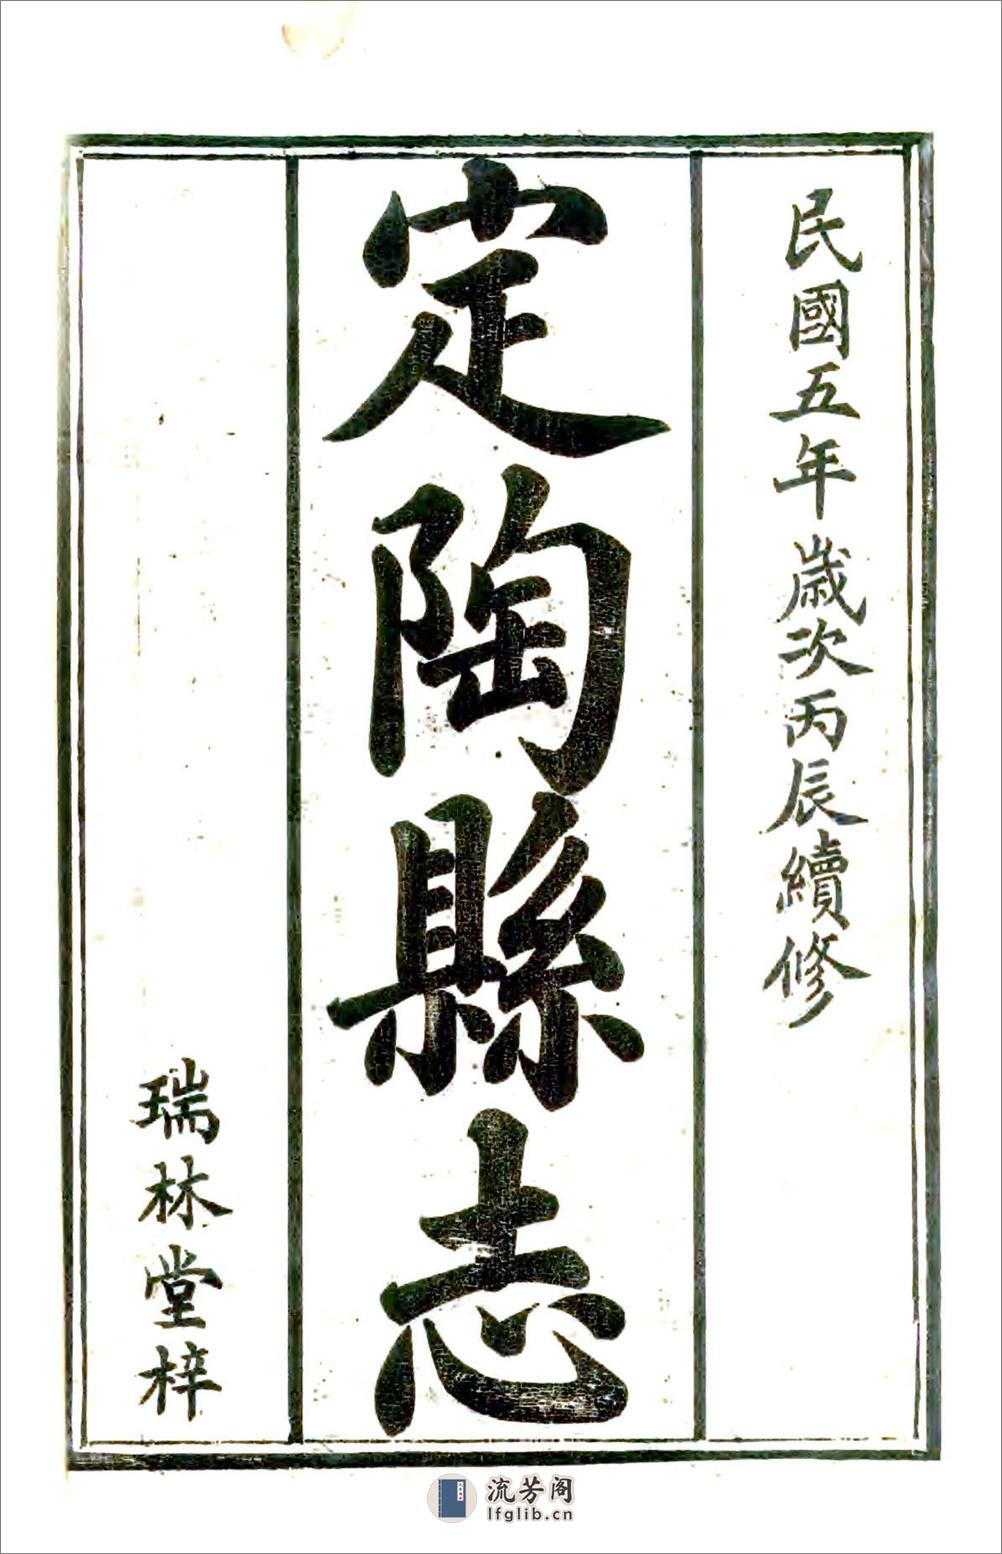 民國五年歲次丙辰續修
定陶縣志
瑞林堂梓
流芳阁
lfglib.cn